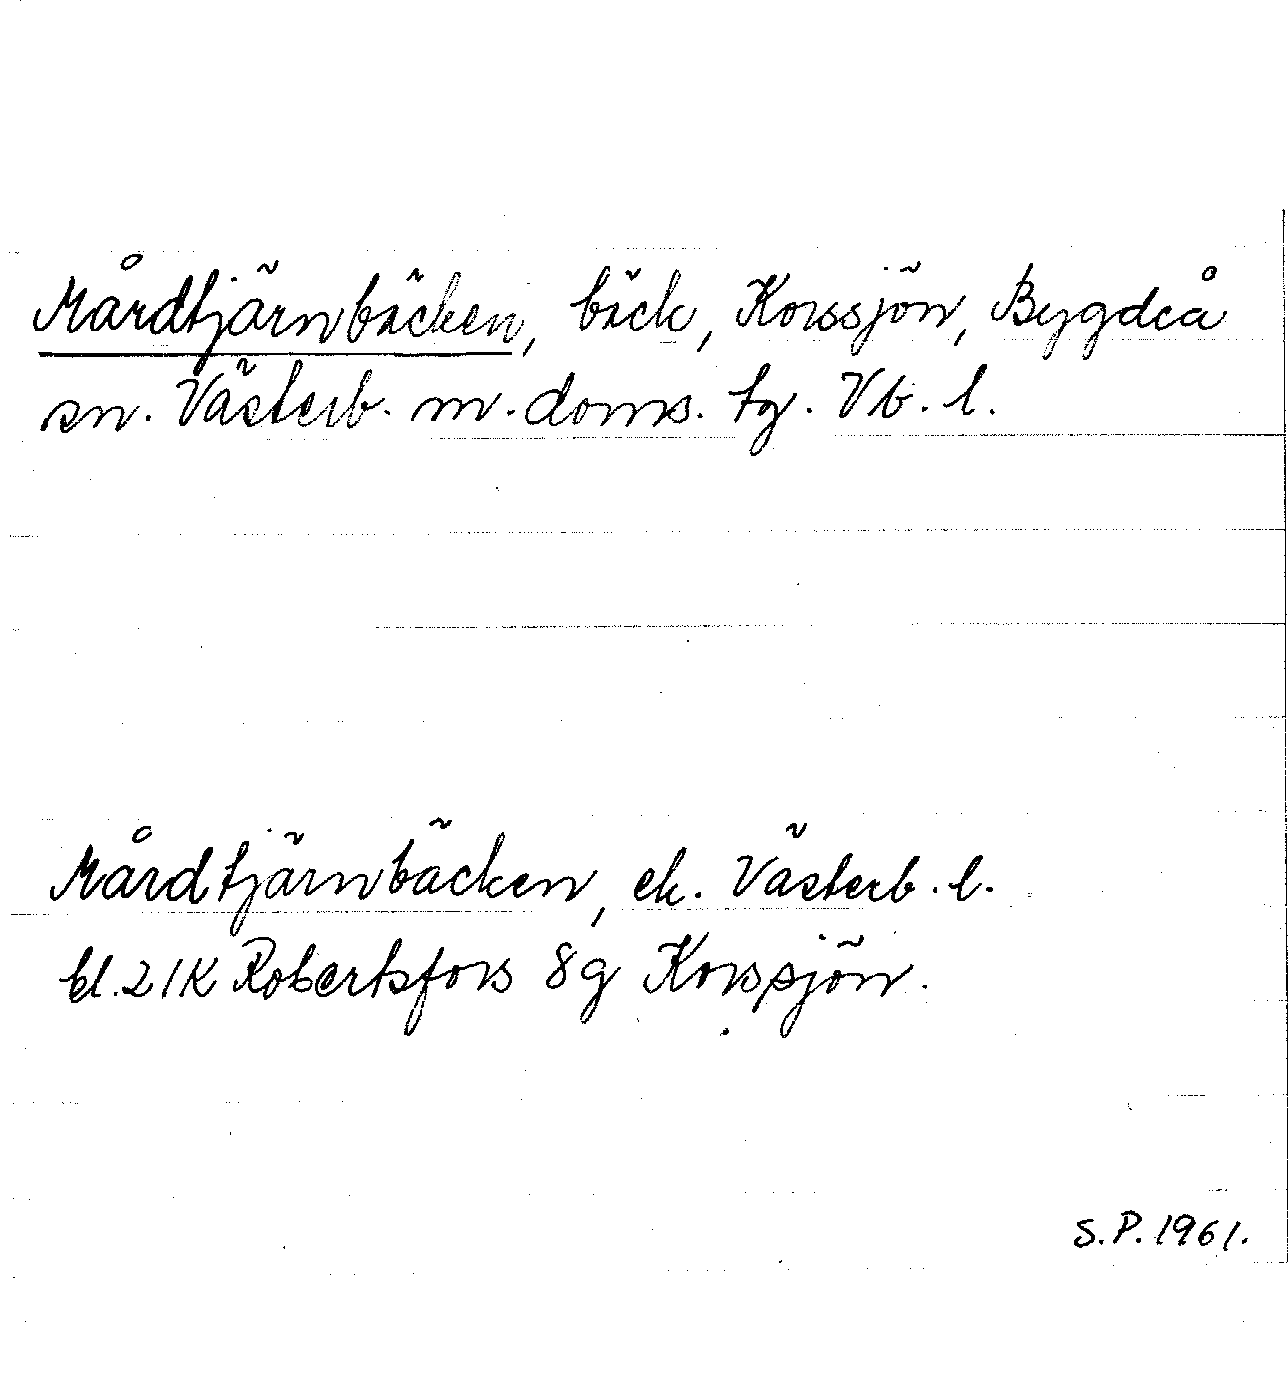 Mårdtjärnbäcken, bäck, Korssjön, Bygdeå
sn. Västerb. m. doms. tg. Vb. l.
Mårdtjärnbäcken, ek. Västerb. l.
bl. 21K Robertsfors 8g Korssjön.
S.P. 1961.